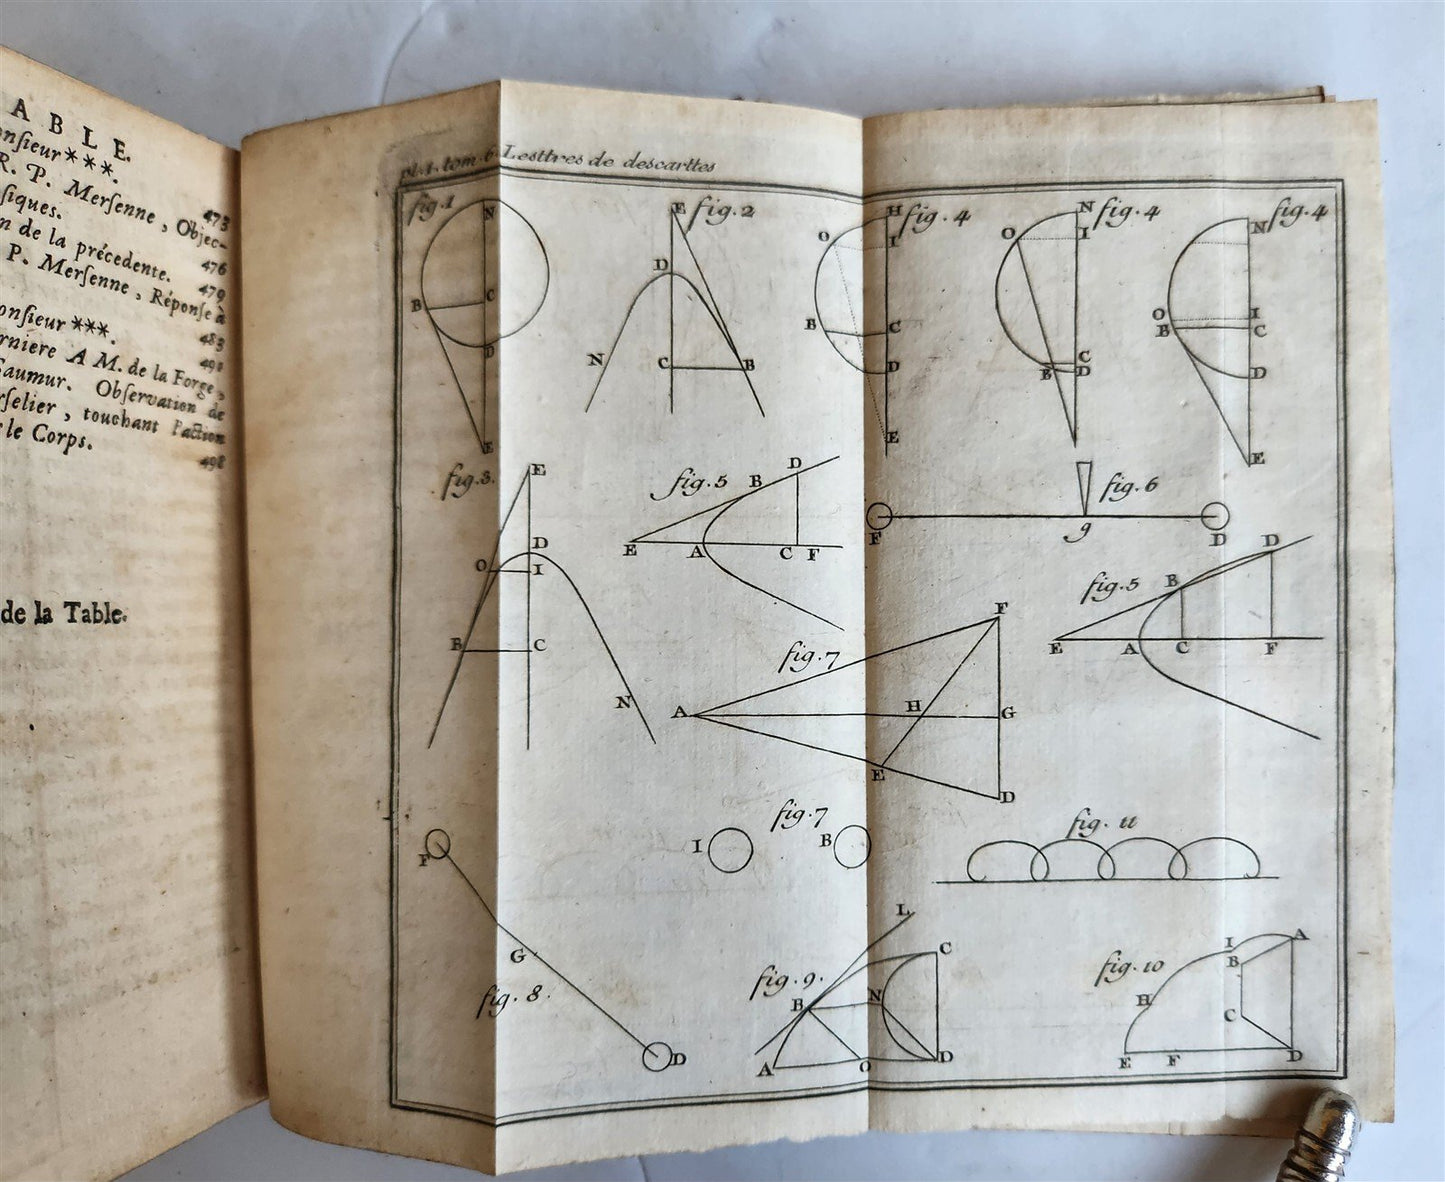 ABLE.
onſieur ***. 473
R. P. Merſenne, Objec-
ſiques. 476
n de la précedente. 479
P. Merſenne, Réponſe à
483
onſieur ***. 491
rniere A M. de la Forge,
Saumur. Obſervation de
rſelier, touchant l'action
le Corps. 498
de la Table.
pl. 1. tom. 6. Lesttres de descarttes
fig. 1
N
B
C
D
E
fig. 2
E
D
N
C
B
fig. 4
H
O
I
B
C
D
E
fig. 4
N
O
I
C
B
D
fig. 4
N
O
I
B
C
D
E
fig. 3.
E
D
O
I
B
C
N
fig. 5
D
B
E
A
C
F
fig. 6
F
g
D
fig. 5
D
B
E
A
C
F
fig. 7
F
A
H
G
E
D
fig. 7
I
B
fig. 11
F
G
fig. 8.
D
fig. 9.
L
C
B
N
A
O
D
fig. 10
I
A
B
H
C
E
F
D